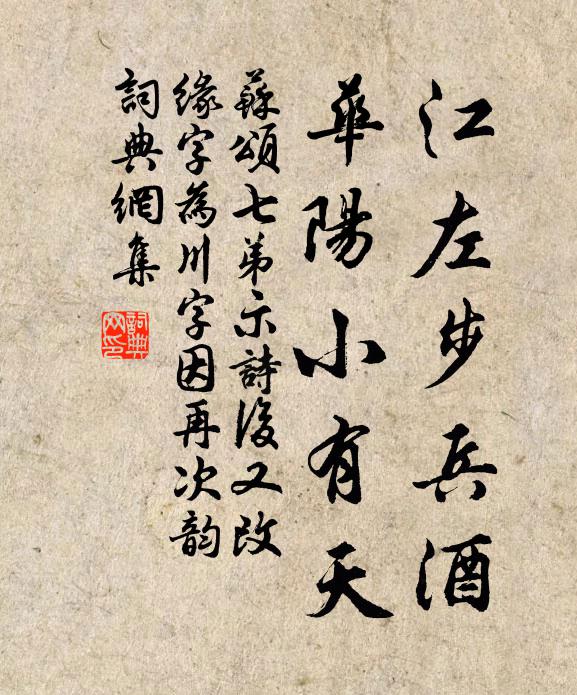 江左步兵酒
華陽小有天
蘇頌七弟示詩後又改
緣字為川字因再次韵
詞典網集
詞典網印